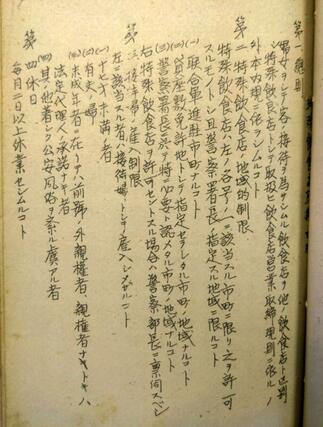 第一 總則
男女ヲシテ客ノ接待ヲ為サシムル飲食店ヲ他ノ飲食店ト区別
シ特殊飲食店トシテ取扱ヒ飲食店営業取締規則ニ依ルノ
外本内規ニ依ラシムルコト
第二 特殊飲食店ノ地域的制限
特殊飲食店ハ左ノ各号ノ一ニ該当スル市町ニ限リ之ヲ許可
スルモノトシ且警察署長ノ指定スル地域ニ限ルコト
(一) 聯合軍進駐市町ナルコト
(二) 貸座敷免許地トシテ指定セラレタル市町ノ地域ナルコト
(三) 警察署長ガ特ニ必要ト認メタル市町ノ地域ナルコト
右特殊飲食店ヲ許可セントスル場合ハ警察部長ニ稟伺スベシ
第三 接待婦ノ雇入制限
左ニ該当スル者ハ接待婦トシテ雇入シメザルコト
(一) 十七才未満ノ者
(二) 有夫ノ婦
(三) 未成年者ニ在リテハ前号ノ外親権者、親権者ナキトキハ
法定代理人ノ承諾ナキ者
(四) 其ノ他著シク公安風俗ヲ紊ル虞アル者
第四 休日
毎月二日以上休業セシムルコト